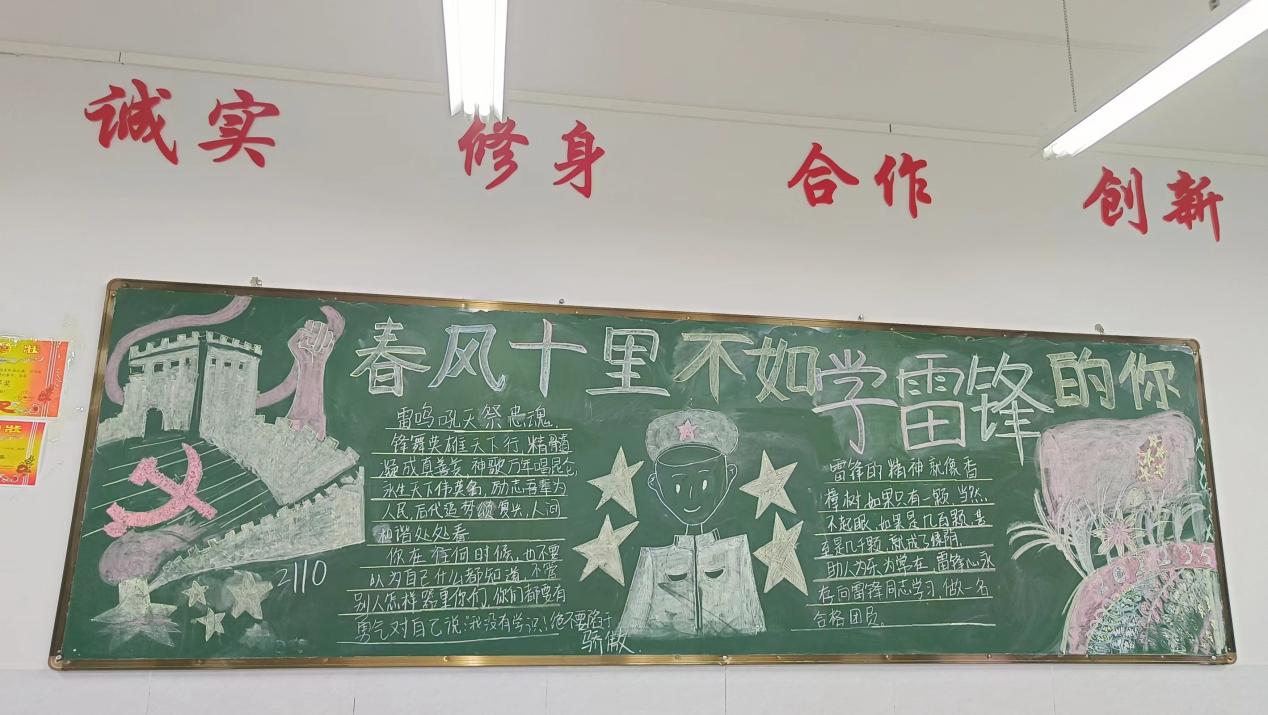 诚实 修身 合作 创新
春风十里不如学雷锋的你
雷鸣吼天祭忠魂
锋舞英雄天下行,精髓
凝成真善美,神歌万年唱昆仑
永生天下伟英名,励志吾辈为
人民,后代追梦颂复兴,人间
和谐处处春
你在任何时候,也不要
以为自己什么都知道,不管
别人怎样器重你们,你们都要有
勇气对自己说:我没有学识!绝不要陷于
骄傲.
2110
雷锋的精神就像香
樟树,如果只有一颗,当然
不起眼,如果是几百颗,甚
至是几千颗,就成了绿荫
助人为乐为学在,雷锋心永
存向雷锋同志学习,做一名
合格团员。